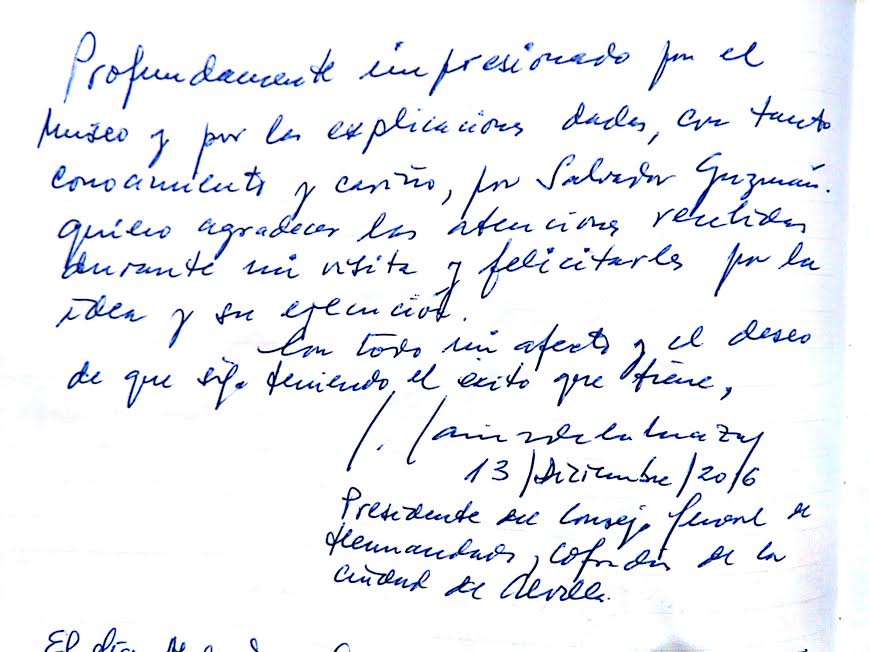 Profundamente impresionado por el
Museo y por las explicaciones dadas, con tanto
conocimiento y cariño, por Salvador Guzmán.
quiero agradecer las atenciones rendidas
durante mi visita y felicitarles por la
idea y su ejecución.
Con todo mi afecto y el deseo
de que siga teniendo el éxito que tiene,
13/Diciembre/2016
Presidente del Consejo General de
Hermandades y Cofradías de la
ciudad de Sevilla.
El día